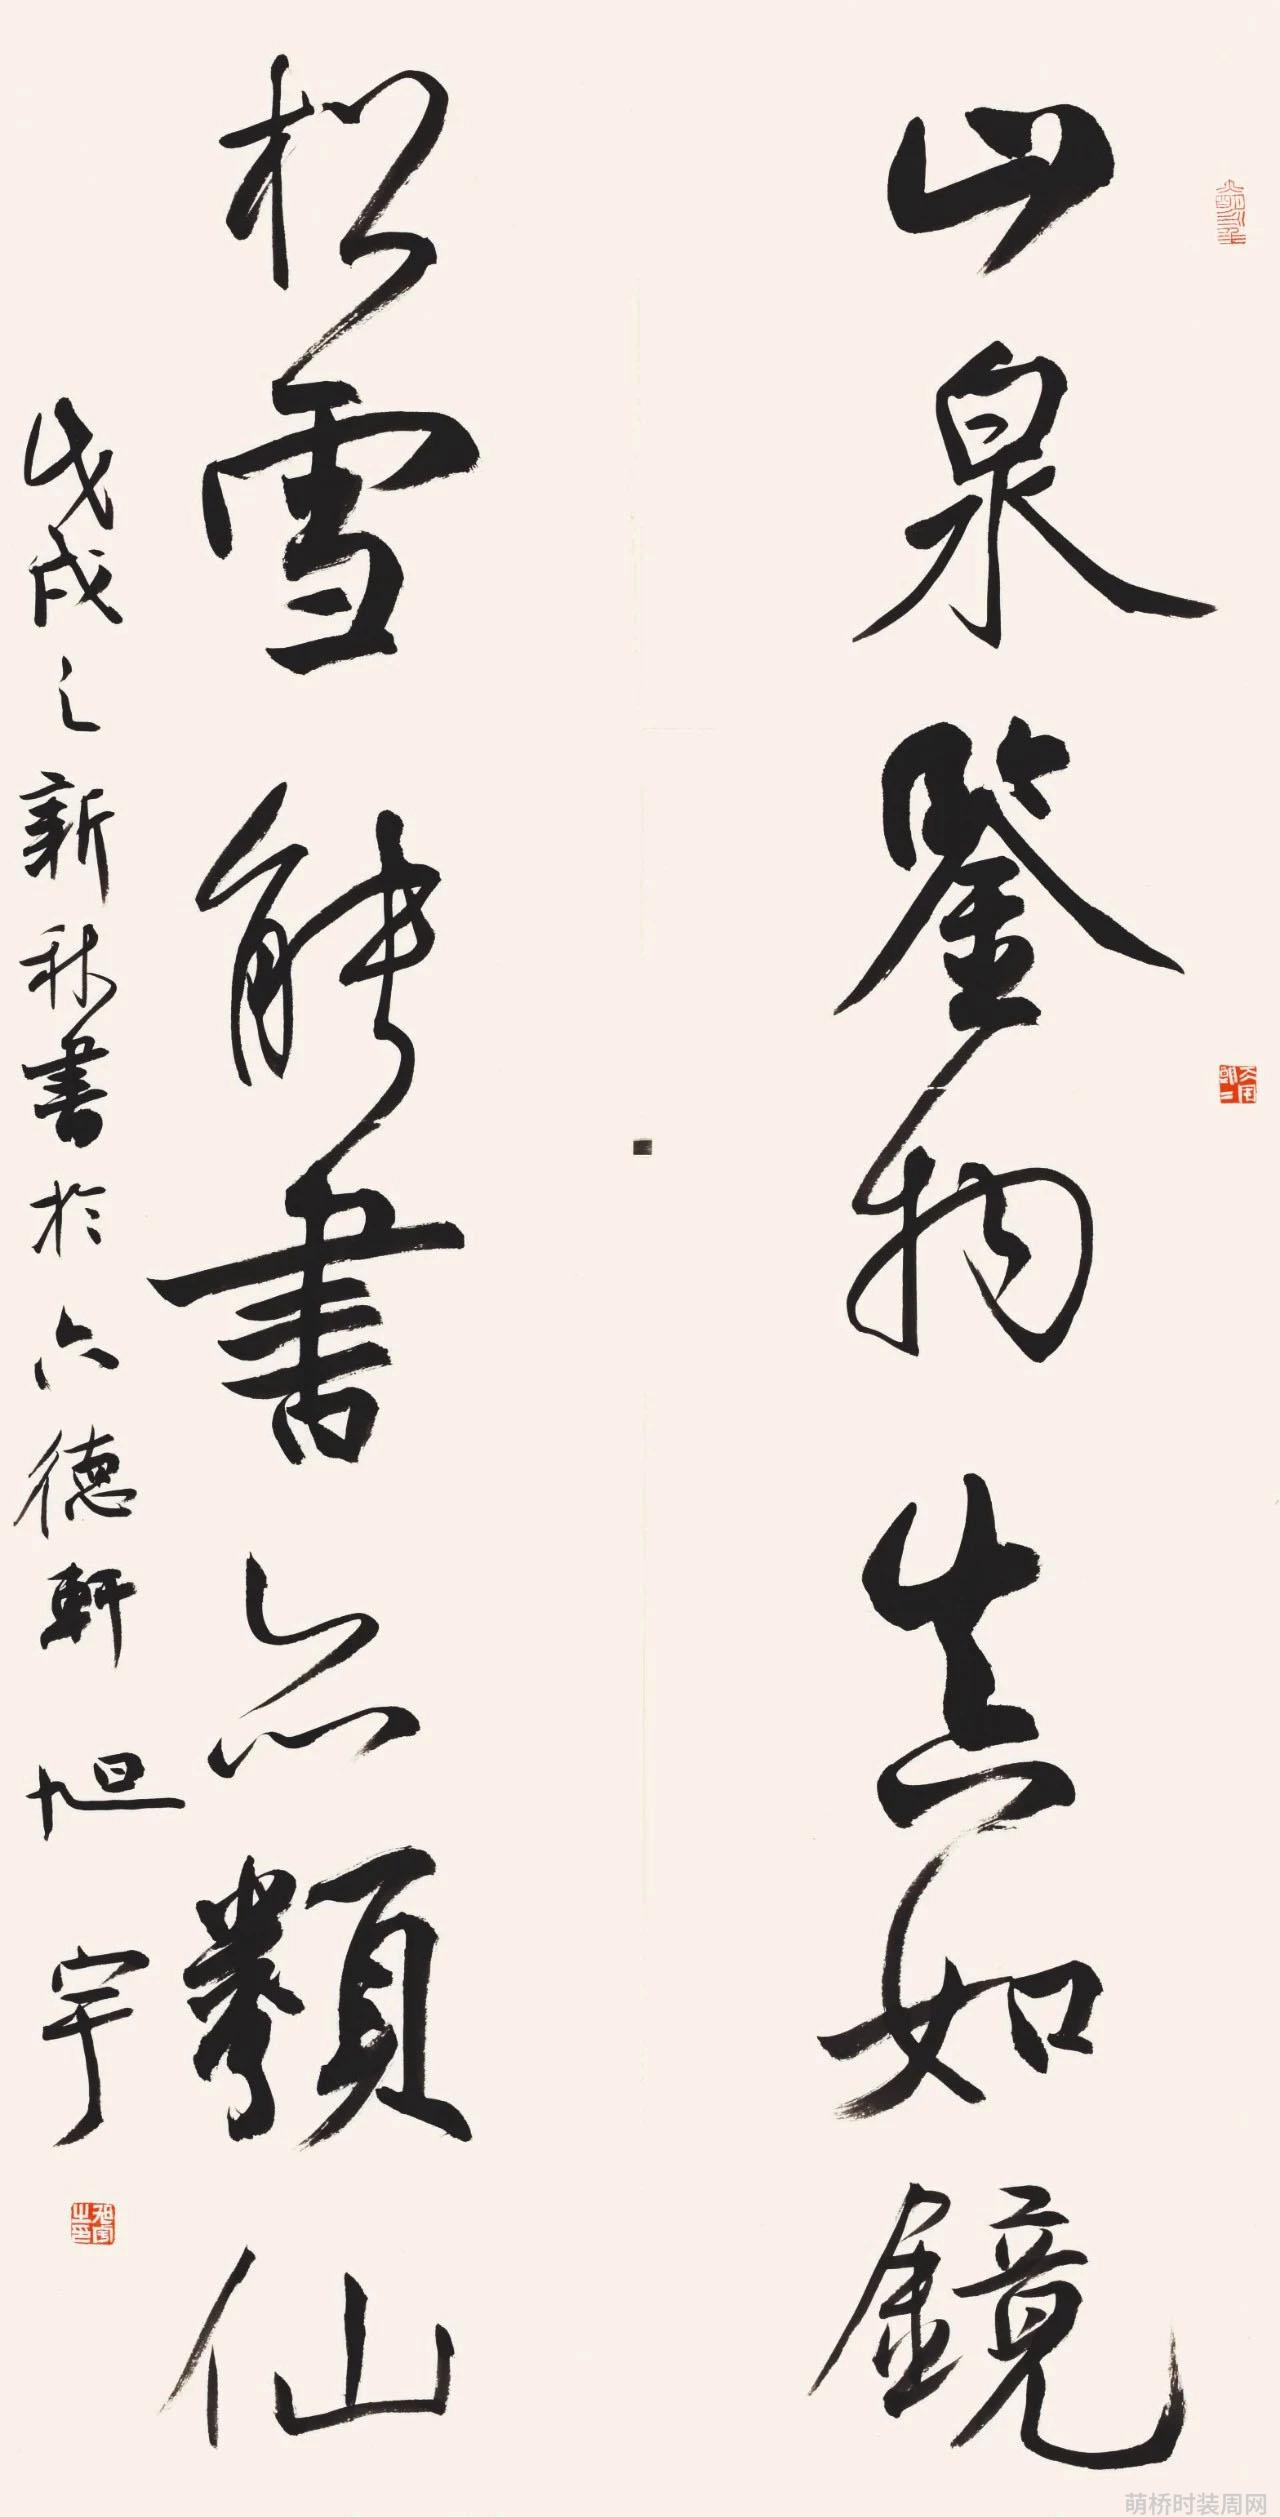 山泉鑒物真如鏡
松雪能書亦類仙
戊戌之新秋書於六德軒旭宇
旭宇之印
萌桥时装周网